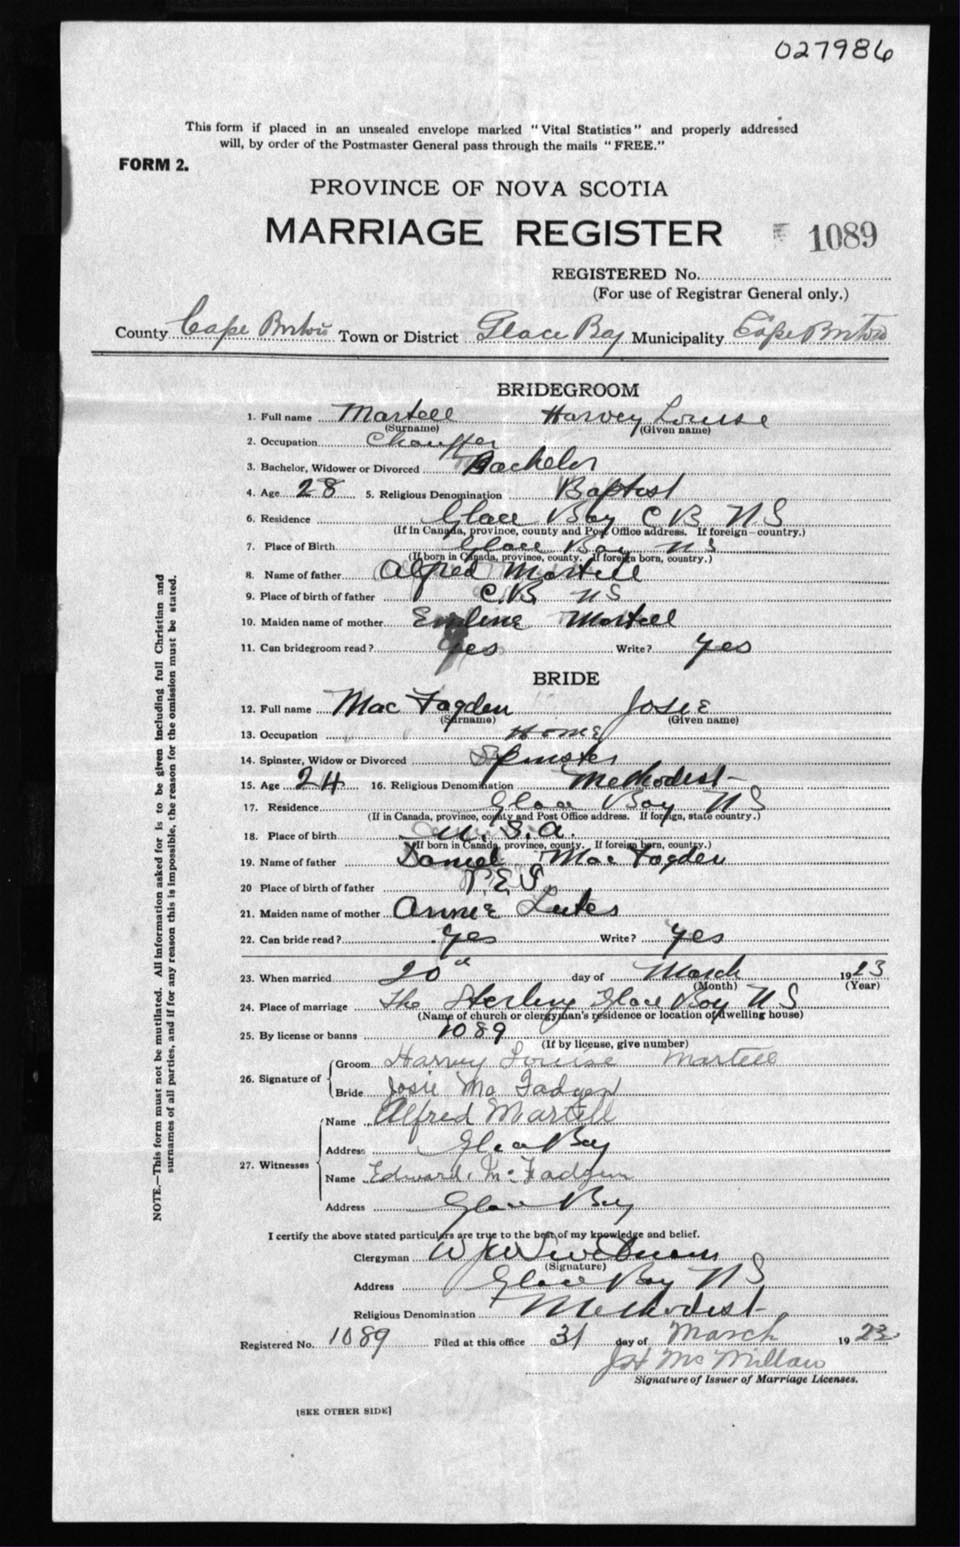 027986
This form if placed in an unsealed envelope marked "Vital Statistics" and properly addressed
will, by order of the Postmaster General pass through the mails "FREE."
FORM 2.
PROVINCE OF NOVA SCOTIA
MARRIAGE REGISTER 1089
REGISTERED No.
(For use of Registrar General only.)
County Cape Breton Town or District Glace Bay Municipality Cape Breton
BRIDEGROOM
1. Full name Martell Harvey Louise
(Surname) (Given name)
2. Occupation Chauffer
3. Bachelor, Widower or Divorced Bachelor
4. Age 28 5. Religious Denomination Baptist
6. Residence Glace Bay C B N S
(If in Canada, province, county and Post Office address. If foreign—country.)
7. Place of Birth Glace Bay N S
(If born in Canada, province, county. If foreign born, country.)
8. Name of father Alfred Martell
9. Place of birth of father C.B. N S
10. Maiden name of mother Emline Martell
11. Can bridegroom read? Yes Write? Yes
BRIDE
12. Full name Mac Fagden Josie
(Surname) (Given name)
13. Occupation Home
14. Spinster, Widow or Divorced Spinster
15. Age 24 16. Religious Denomination Methodist
17. Residence Glace Bay N S
(If in Canada, province, county and Post Office address. If foreign, state country.)
18. Place of birth U.S.A.
(If born in Canada, province, county. If foreign born, country.)
19. Name of father Daniel Mac Fagden
20 Place of birth of father P.E.I
21. Maiden name of mother Annie Lutes
22. Can bride read? Yes Write? Yes
23. When married 20th day of March 1923
(Month) (Year)
24. Place of marriage The Sterling Glace Bay N S
(Name of church or clergyman's residence or location of dwelling house)
25. By license or banns 1089
(If by license, give number)
26. Signature of Groom Harvey Louise Martell
Bride Josie Mc Fadgen
27. Witnesses Name Alfred Martell
Address Glace Bay
Name Edward Mc Fadgen
Address Glace Bay
I certify the above stated particulars are true to the best of my knowledge and belief.
Clergyman W J W
(Signature)
Address Glace Bay N S
Religious Denomination Methodist
Registered No. 1089 Filed at this office 31 day of March 1923
J H McMillan
Signature of Issuer of Marriage Licenses.
[SEE OTHER SIDE]
NOTE.—This form must not be mutilated. All information asked for is to be given including full Christian and
surnames of all parties, and if for any reason this is impossible, the reason for the omission must be stated.